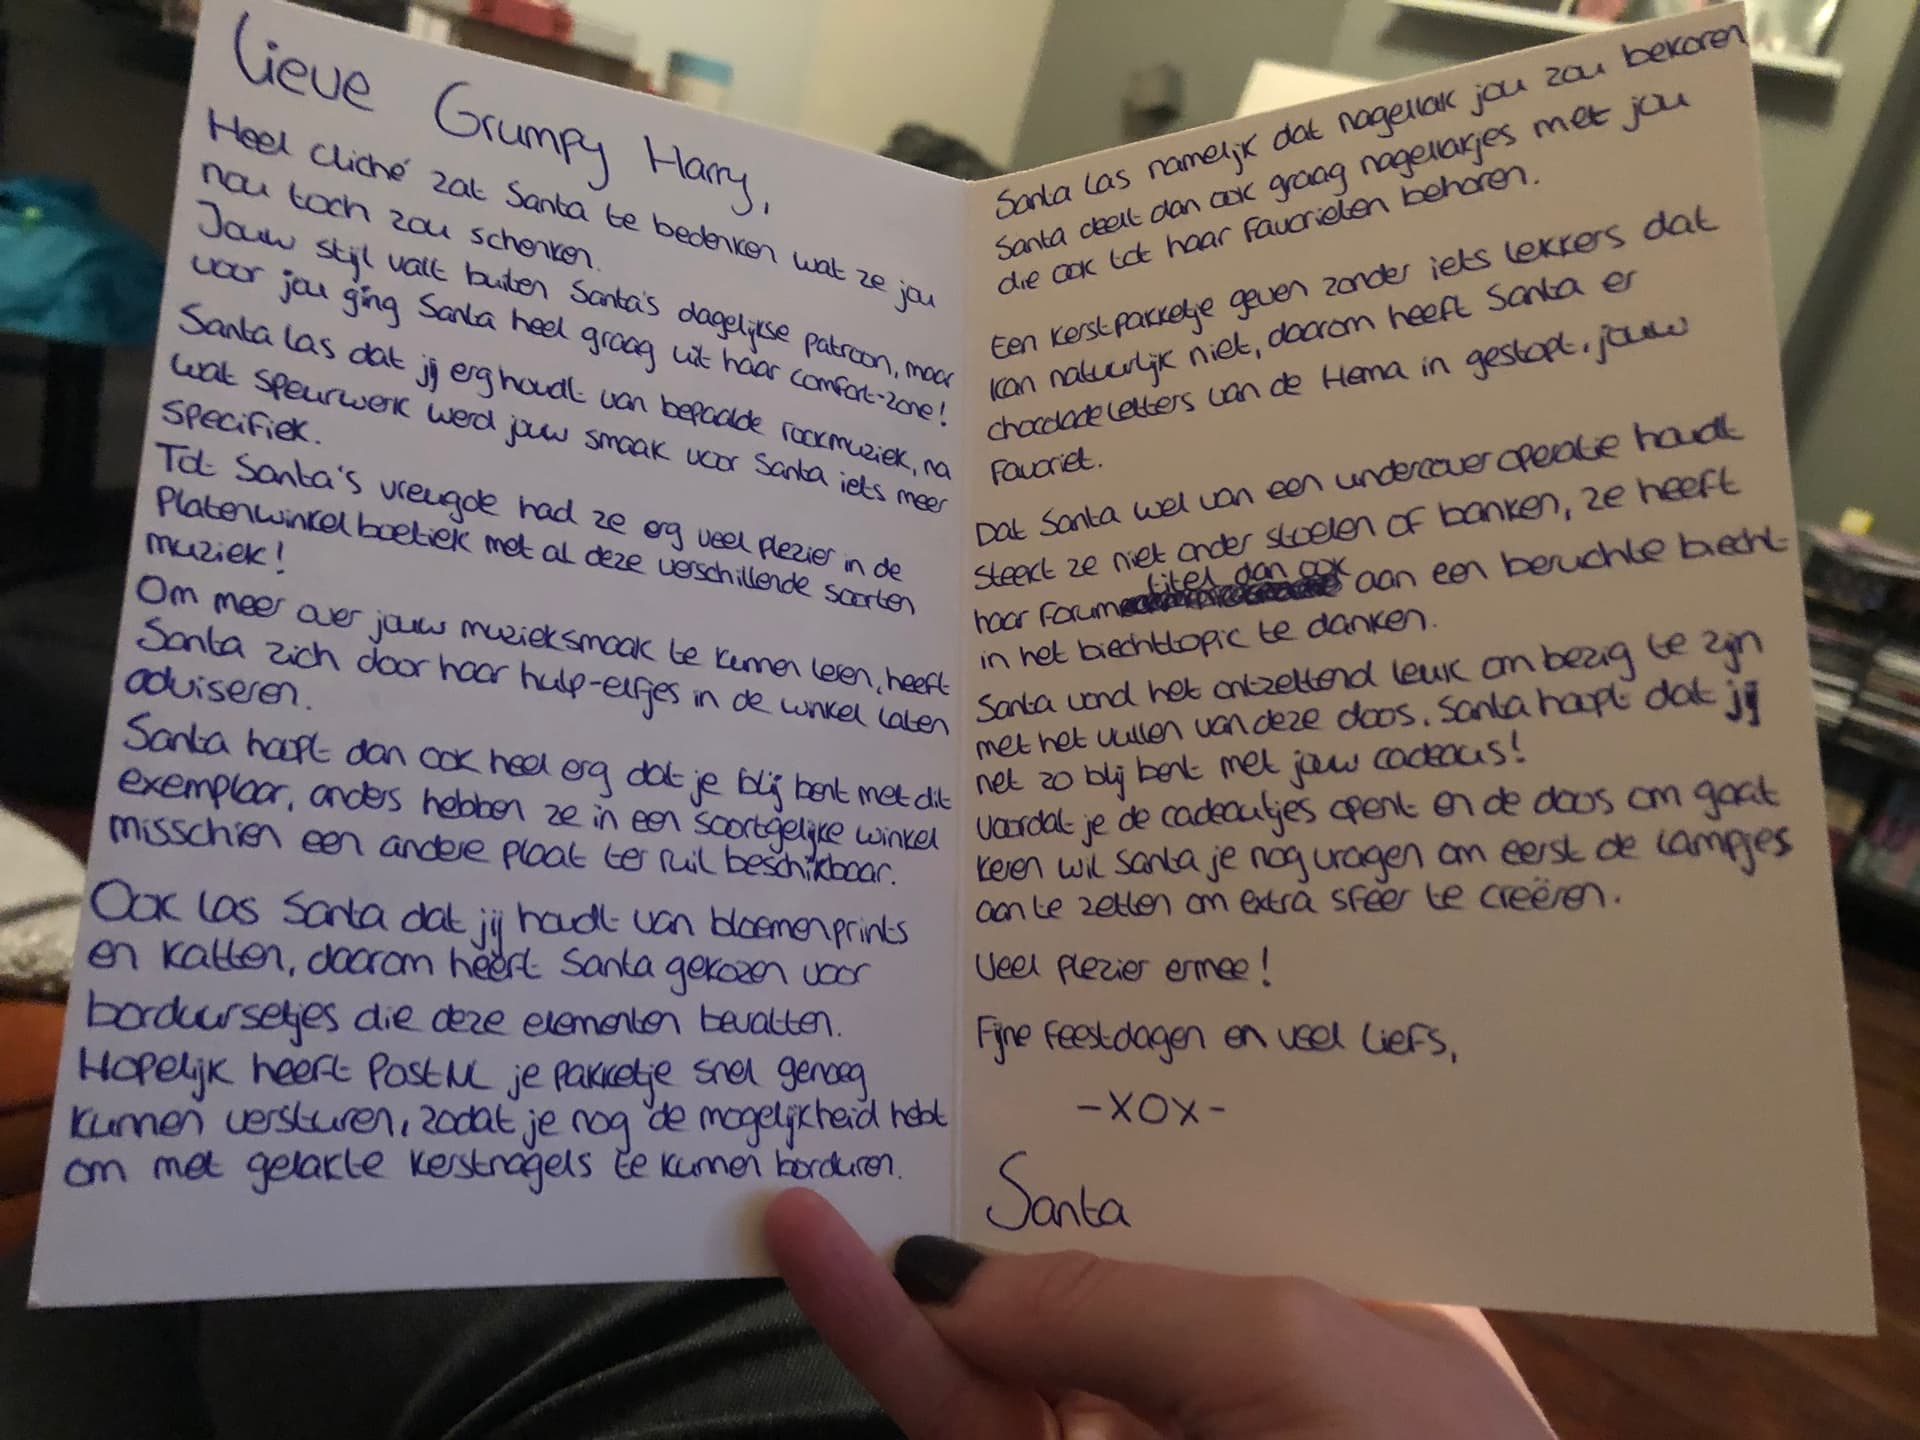 Lieve Grumpy Harry,
Heel cliché zat Santa te bedenken wat ze jou
nou toch zou schenken.
Jouw stijl valt buiten Santa's dagelijkse patroon, maar
voor jou ging Santa heel graag uit haar comfort-zone!
Santa las dat jij erg houdt van bepaalde rockmuziek, na
wat speurwerk werd jouw smaak voor Santa iets meer
specifiek.
Tot Santa's vreugde had ze erg veel plezier in de
platenwinkel boetiek met al deze verschillende soorten
muziek!
Om meer over jouw muzieksmaak te kunnen leren, heeft
Santa zich door haar hulp-elfjes in de winkel laten
adviseren.
Santa hoopt dan ook heel erg dat je blij bent met dit
exemplaar, anders hebben ze in een soortgelijke winkel
misschien een andere plaat ter ruil beschikbaar.
Ook las Santa dat jij houdt van bloemenprints
en katten, daarom heeft Santa gekozen voor
borduursetjes die deze elementen bevatten.
Hopelijk heeft PostNL je pakketje snel genoeg
kunnen versturen, zodat je nog de mogelijkheid hebt
om met gelakte kerstnagels te kunnen borduren.
Santa las namelijk dat nagellak jou zou bekoren
Santa deelt dan ook graag nagellakjes met jou
die ook tot haar favorieten behoren.
Een kerstpakketje geven zonder iets lekkers dat
kan natuurlijk niet, daarom heeft Santa er
chocoladeletters van de Hema in gestopt, jouw
favoriet.
Dat Santa wel van een undercover operatie houdt
steekt ze niet onder stoelen of banken, ze heeft
haar forum titel dan ook aan een beruchte biecht
in het biechttopic te danken.
Santa vond het ontzettend leuk om bezig te zijn
met het vullen van deze doos. Santa hoopt dat jij
net zo blij bent met jouw cadeaus!
Voordat je de cadeautjes opent en de doos om gaat
keren wil Santa je nog vragen om eerst de lampjes
aan te zetten om extra sfeer te creëren.
Veel plezier ermee!
Fijne feestdagen en veel liefs,
-XOX-
Santa